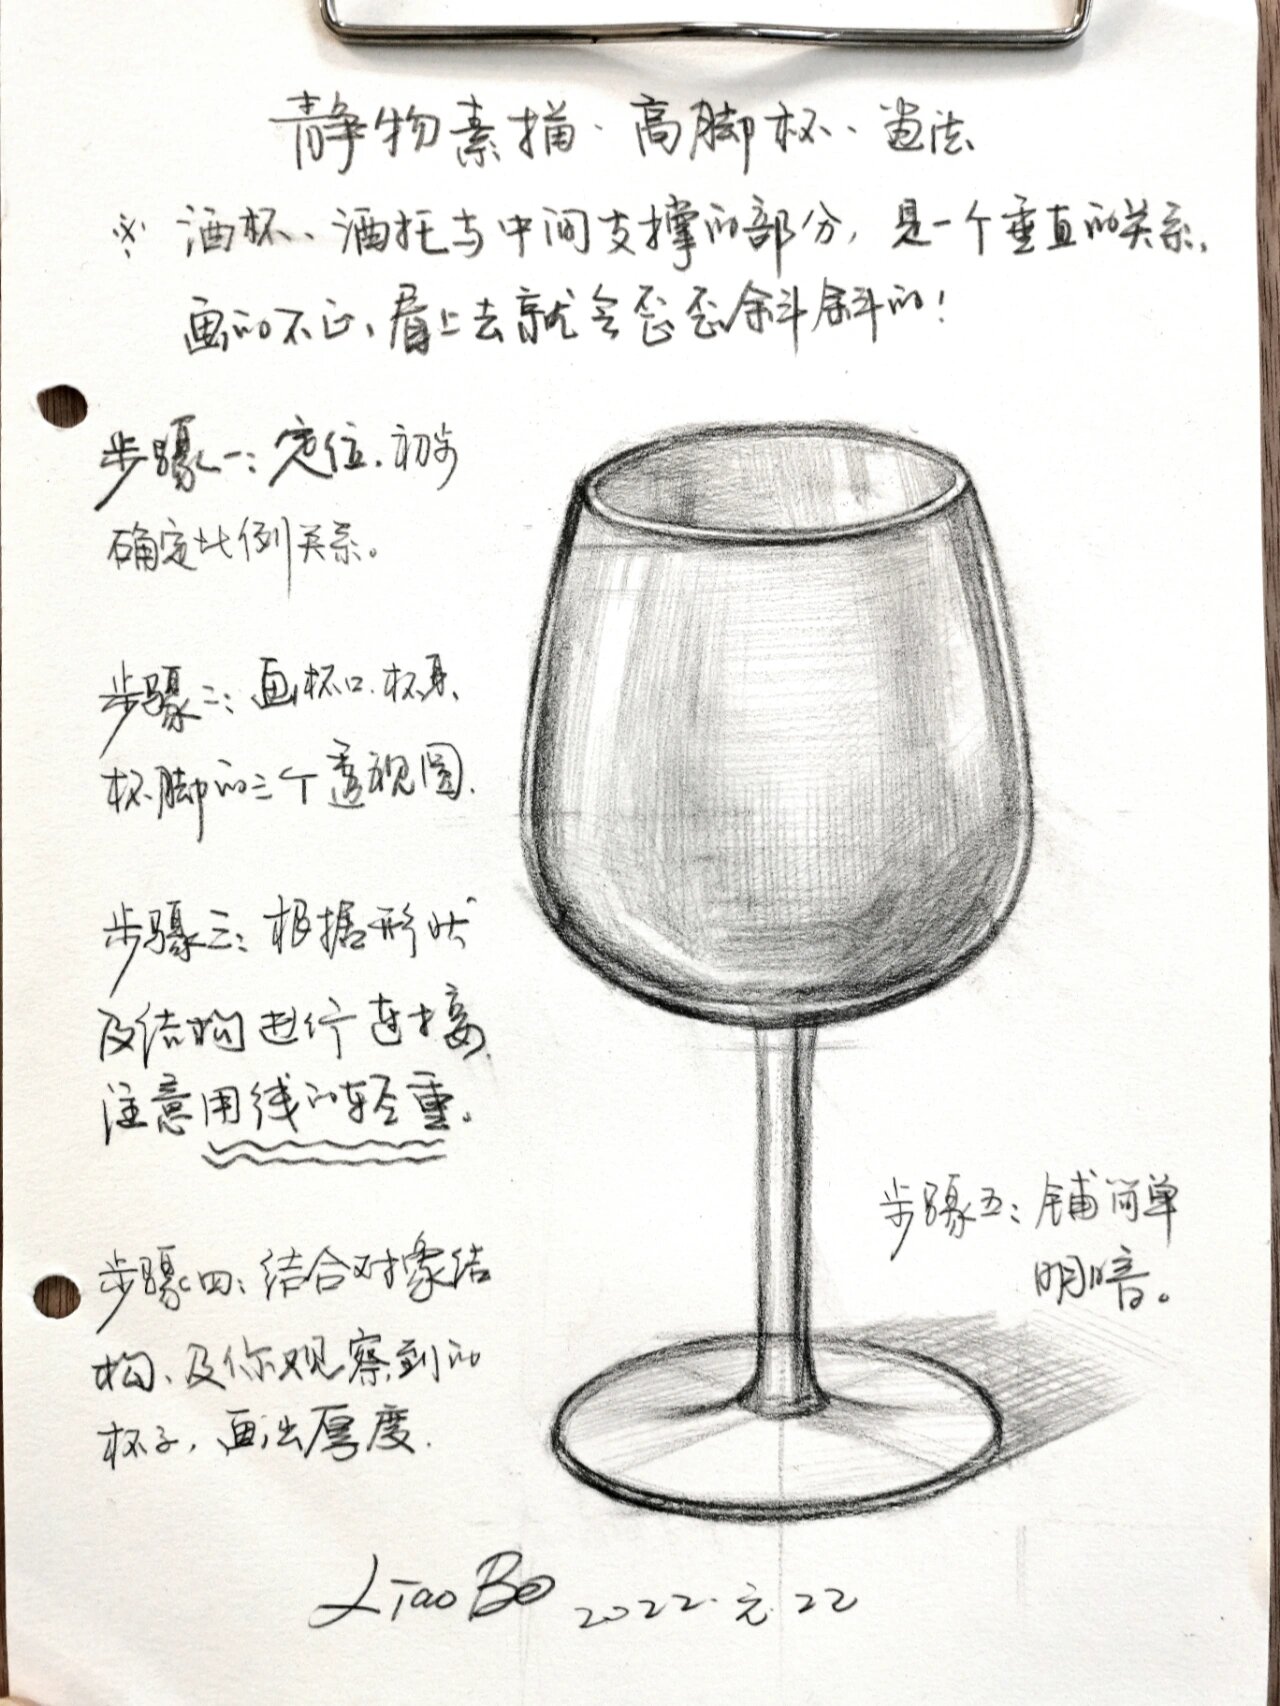 静物素描·高脚杯、画法
※ 酒杯、酒托与中间支撑的部分，是一个垂直的关系，
画的不正，看上去就会歪歪斜斜的！
步骤一：定位，初步
确定比例关系。
步骤二：画杯口、杯身、
杯脚的三个透视圆。
步骤三：根据形状
及结构进行连接，
注意用线的轻重。
步骤四：结合对象结
构、及你观察到的
杯子，画出厚度。
步骤五：铺简单
明暗。
LiaoBo 2022.元.22